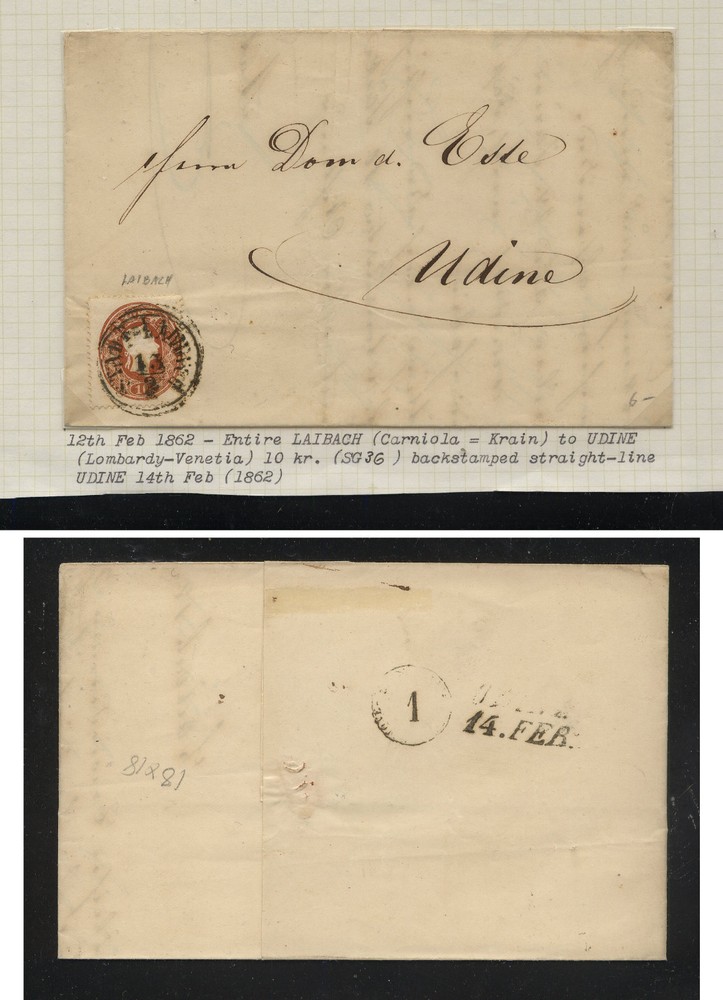 Herrn Dom d. Este
Udine
LAIBACH
STADT-LAIBACH
12
2
6-
12th Feb 1862 - Entire LAIBACH (Carniola = Krain) to UDINE
(Lombardy-Venetia) 10 kr. (SG36 ) backstamped straight-line
UDINE 14th Feb (1862)
1
14.FEB.